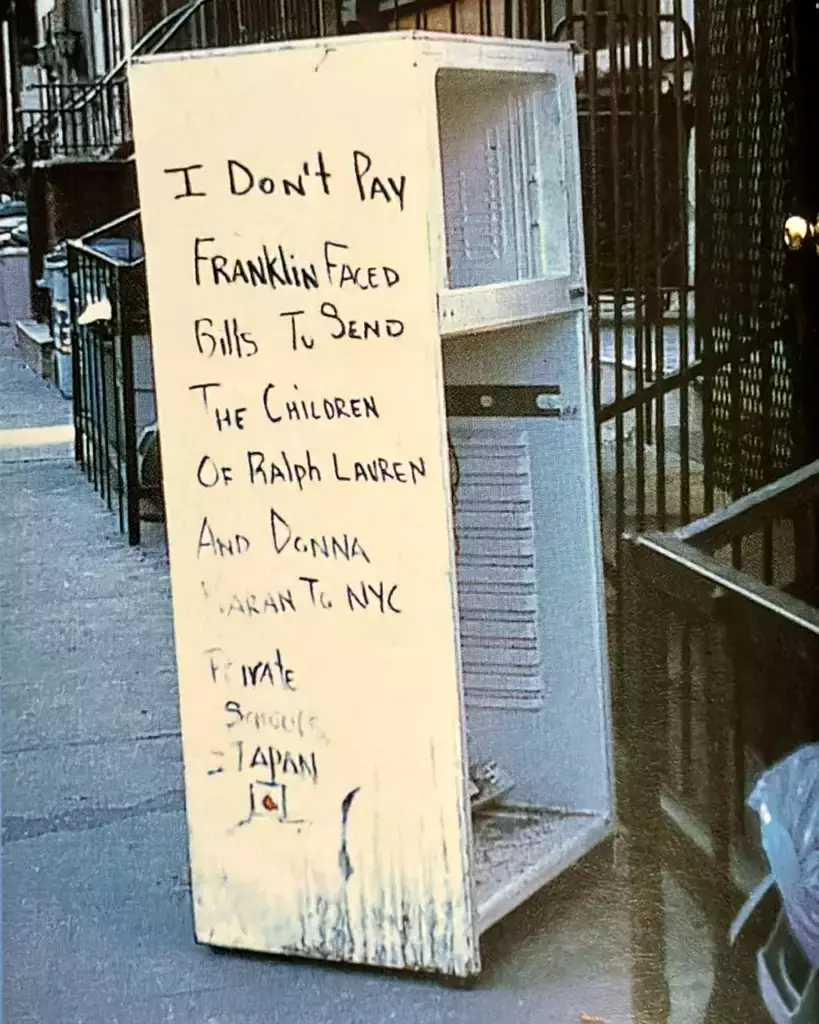 I DON't PAY
FRANKLIN FACED
Bills To SEND
THE CHILDREN
OF RALph LAUREN
AND DONNA
KARAN To NYC
PRIVATE
SCHOOLS
=JAPAN